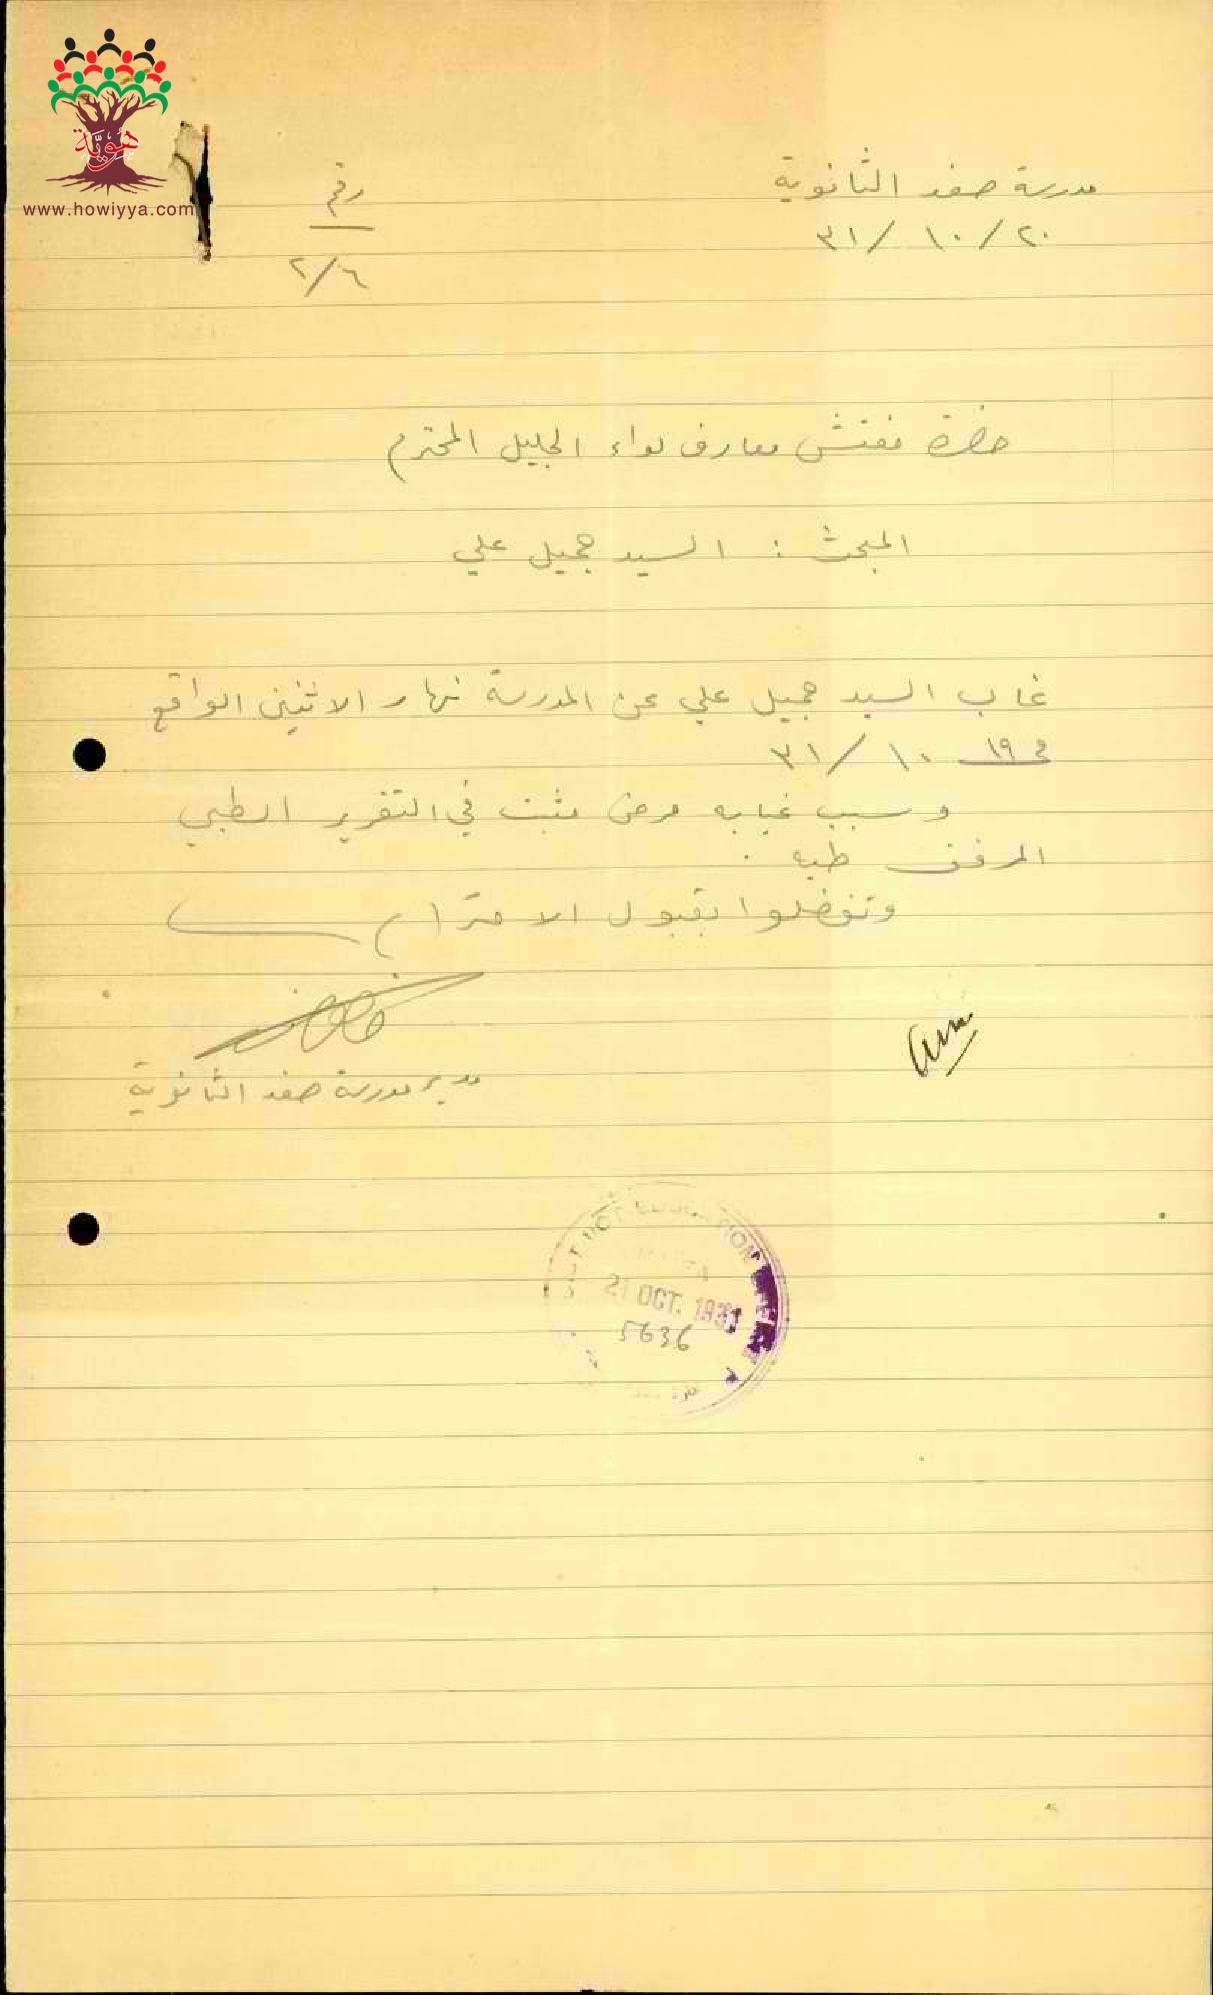 هوية
www.howiyya.com
مدرسة صفد الثانوية
٢٠/١٠/٣١
رقم
٢/٦
حضرة مفتش معارف لواء الجليل المحترم
المبحث : السيد جميل علي
غاب السيد جميل علي عن المدرسة نهار الاثنين الواقع
في ١٩ ١٠/٣١
وسبب غيابه مرض مثبت في التقرير الطبي
المرفق طيه .
وتفضلوا بقبول الاحترام
مدير مدرسة صفد الثانوية
EDUCATION
21 OCT. 1931
5636